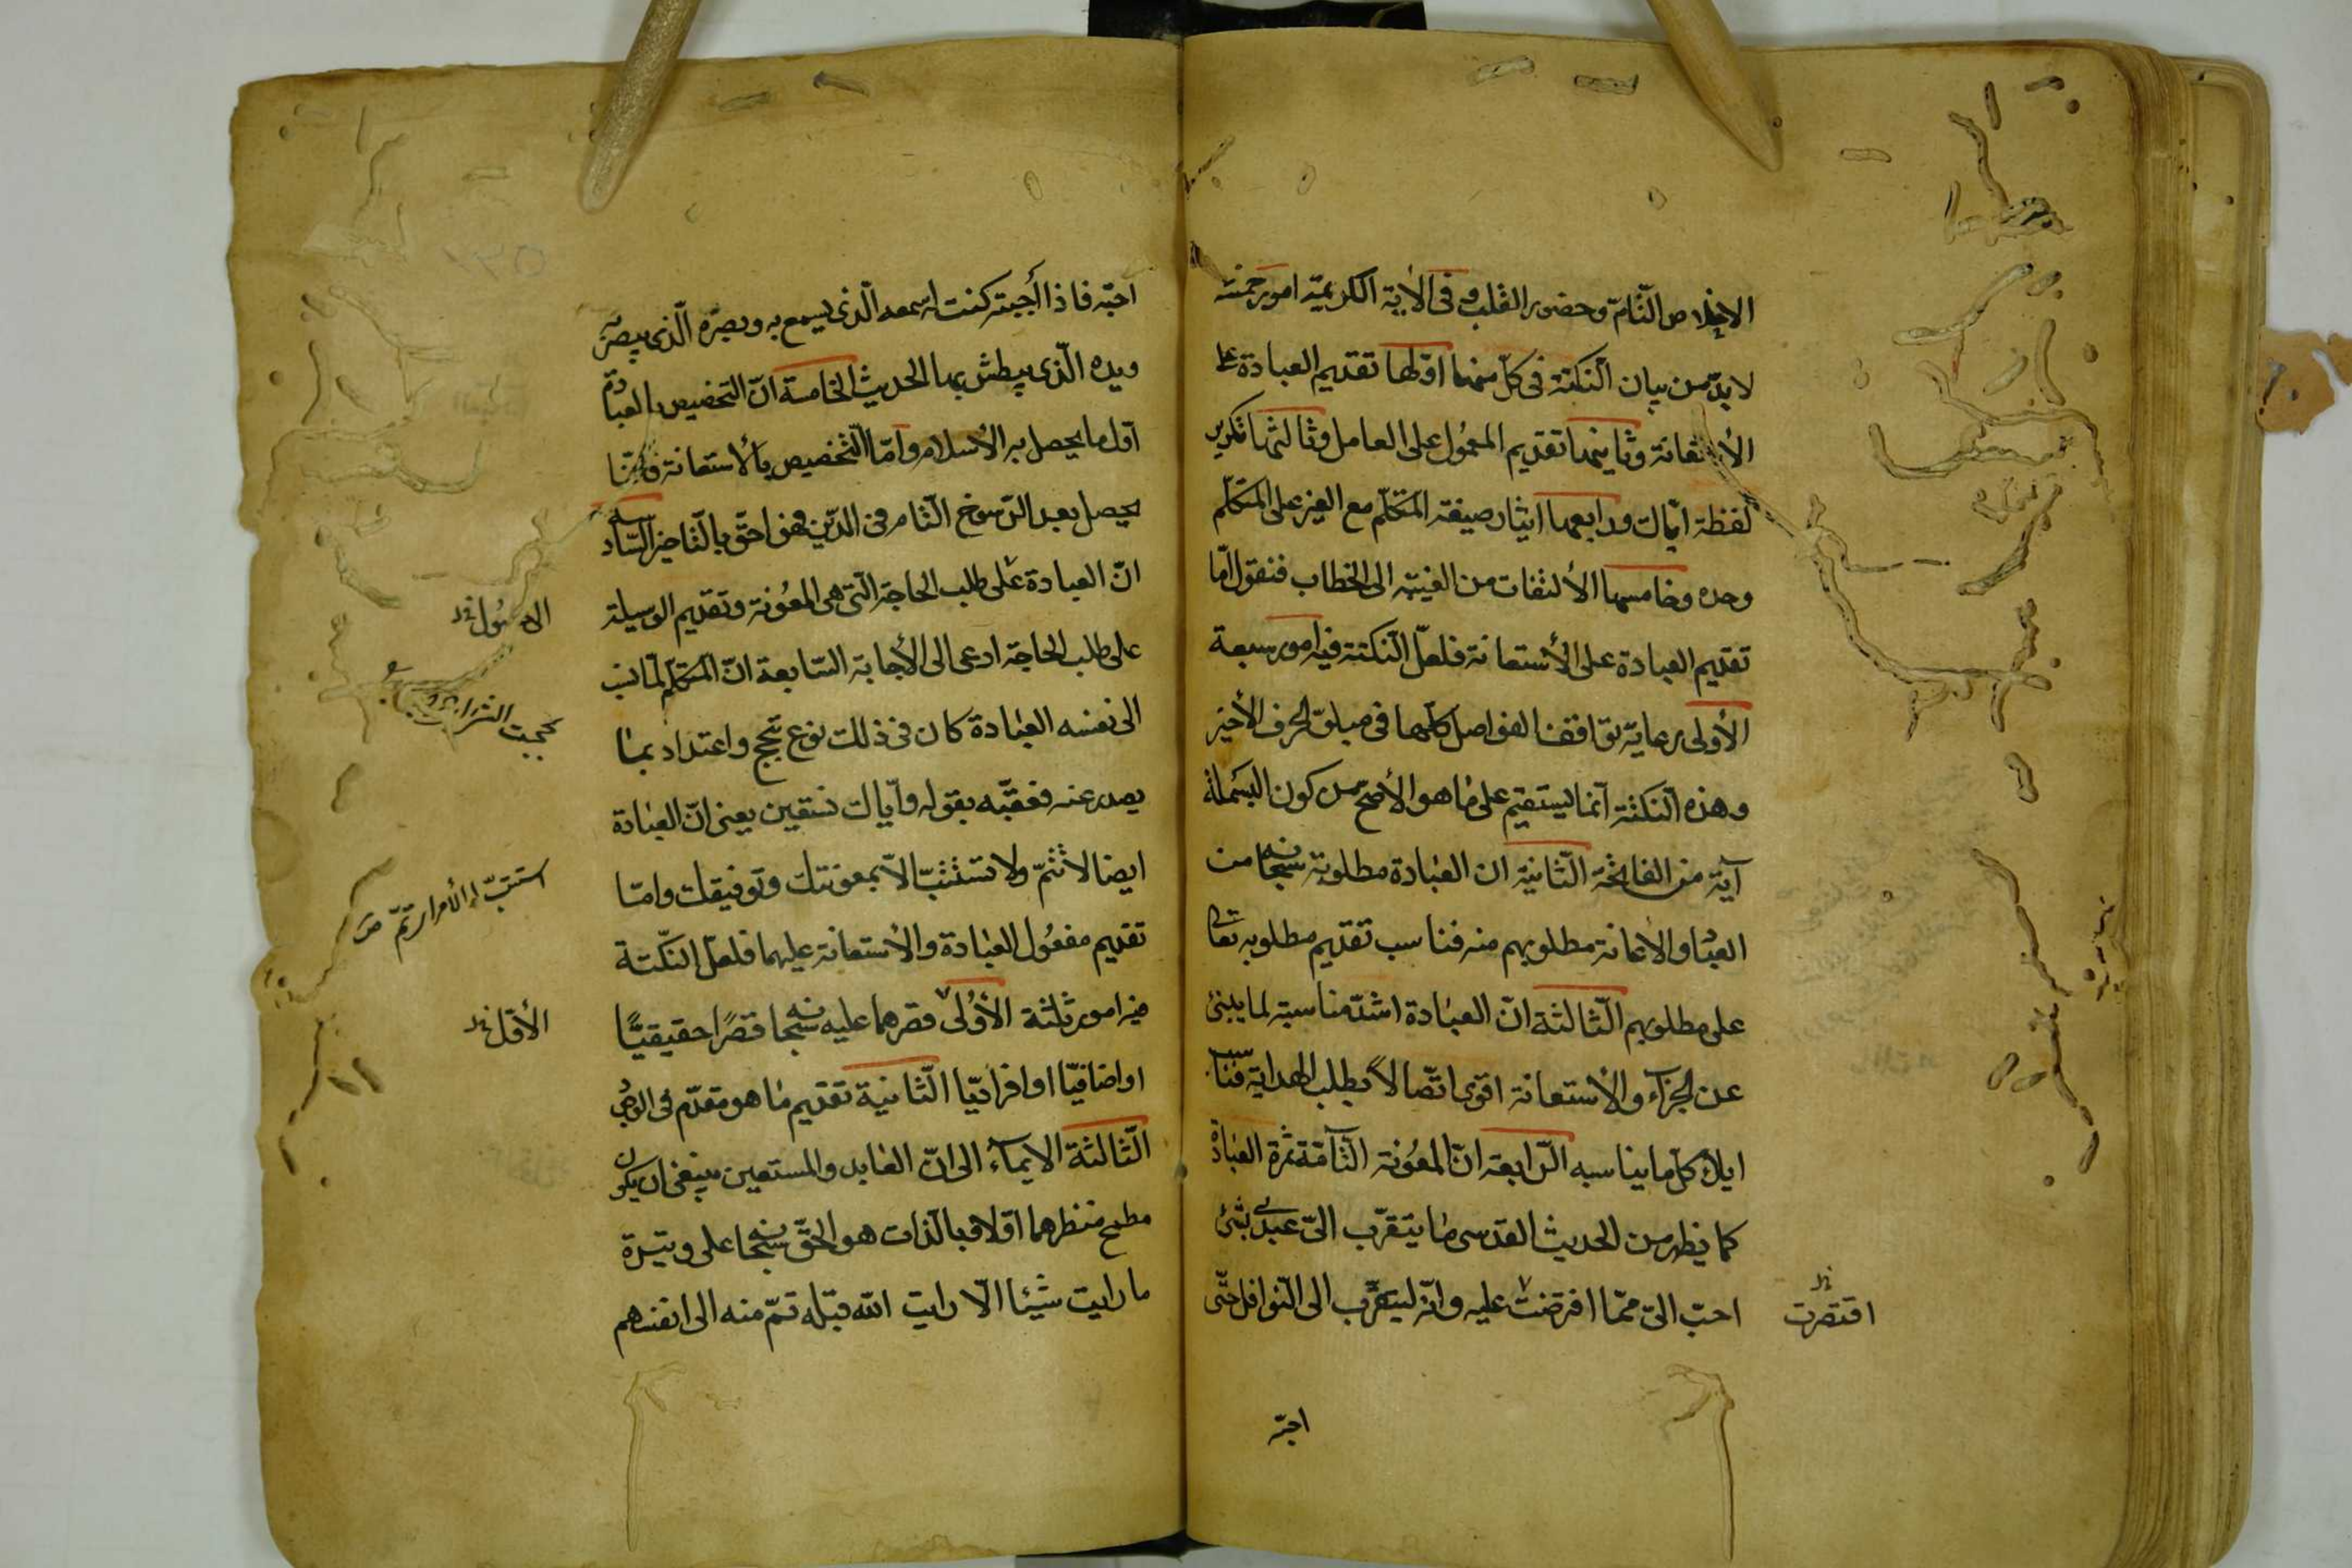 الإخلاص التّام وحضور القلب وفى الأية الكريمة امور خمسة
لابدّ من بيان النكتة فى كلّ منها اوّلها تقديم العبادة على
الأستعانة وثانيها تقديم المعمول على العامل وثالثها تكرير
لفظة ايّاك ورابعها ايثار صيغة المتكلّم مع الغير على المتكلّم
وحده وخامسها الألتفات من الغيبة الى الخطاب فنقول امّا
تقديم العبادة على الأستعانة فلعلّ النكتة فيه امور سبعة
الأولى رعاية توافق الفواصل كلها فى متلوّ الحرف الأخير
وهذه النكتة انّما يستقيم على ما هو الأصح من كون البسملة
آية من الفاتحة الثّانية ان العبادة مطلوبة سبحانه من
العباد والاعانة مطلوبهم منه فناسب تقديم مطلوبه تعالى
على مطلوبهم الثّالثة انّ العبادة اشدّ مناسبة لما ينبئ
عن الجزآء والأستعانة اقوى اتّصالاً بطلب الهداية فناسب
ايلاء كلّ ما يناسبه الرّابعة انّ المعونة التّآمّة ثمرة العبادة
كما يظهر من الحديث القدسى ما يتقرّب الىّ عبدى بشئ
احبّ الىّ ممّا افترضت عليه وانّه ليتقرّب الى النّوافل حتّى
اقتصرت
احبّه
احبّه فاذا أحببته كنت سمعه الّذى يسمع به وبصره الّذى يبصر به
ويده الّذى يبطش بها الحديث الخامسة انّ التخصيص بالعبادة
اوّل ما يحصل به الأسلام وامّا التّخصيص بالأستعانة فانّما
يحصل بعد الرّسوخ التّام فى الدّين فهو احقّ بالتّاخير السّادسة
انّ العبادة على طلب الحاجة الّتى هى المعونة وتقديم الوسيلة
على طلب الحاجة ادعى الى الأجابة السّابعة انّ المتكلّم لمّا نسب
الى نفسه العبادة كان فى ذلك نوع تبجّح واعتداد بما
يصدر عنه فعقّبه بقوله وايّاك نستعين يعنى انّ العبادة
ايضا لا تتمّ ولا تستتبّ الاّ بمعونتك وتوفيقك وامّا
تقديم مفعول العبادة والأستعانة عليهما فلعلّ النّكتة
فيه امور ثلثة الأولى قصرهما عليه سبحانه قصرًا حقيقيًّا
او اضافيّا او افراديّا الثّانية تقديم ما هو مقدّم فى الوجود
الثّالثة الايمآء الى انّ العابد والمستعين ينبغى ان يكون
مطمح نظرهما اوّلا وبالذات هو الحقّ سبحانه على وتيرة
ما رايت شيئا الّا رايت الله قبله ثمّ منه الى انفسهم
استتبّ له الأمر اى تمّ ص
الأوّل